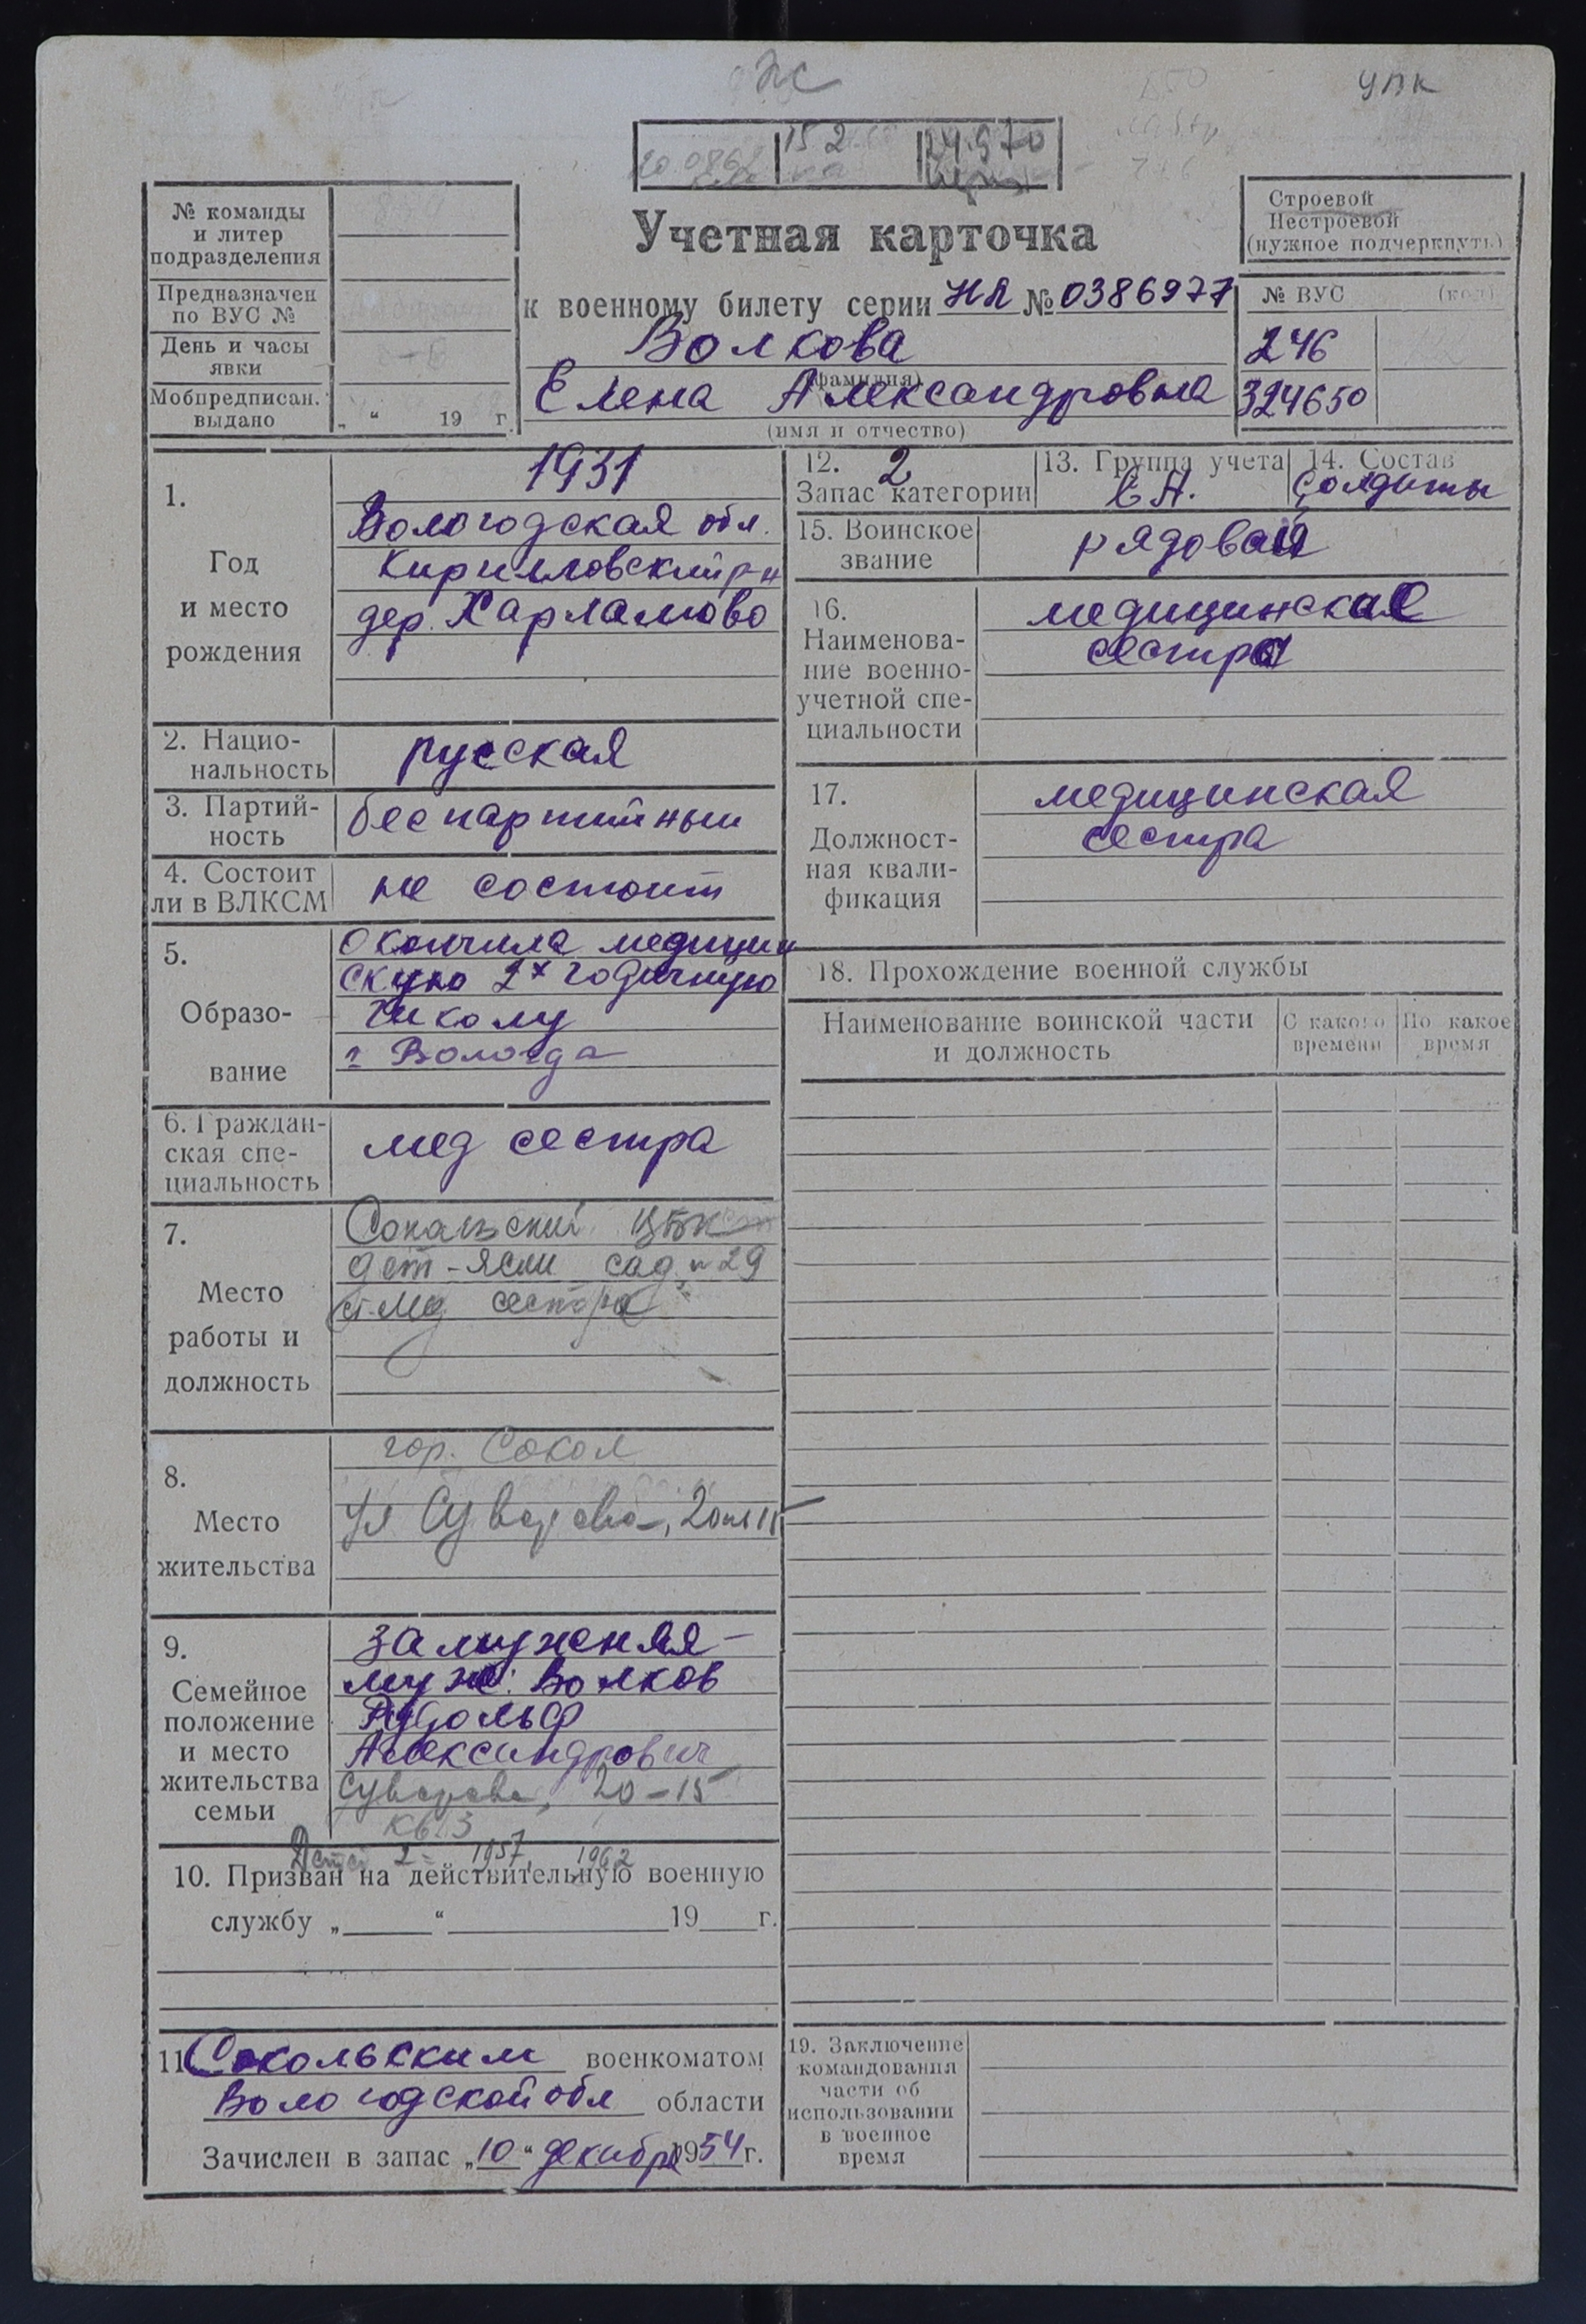 УПК
15 2
24.9.70
№ команды
и литер
подразделения
Предназначен
по ВУС №
День и часы
явки
Мобпредписан.
выдано
„ “ 19 г.
Учетная карточка
к военному билету серии НЯ № 0386977
Волкова
(фамилия)
Елена Александровна
(имя и отчество)
Строевой
Нестроевой
(нужное подчеркнуть)
№ ВУС (код)
246
324650
1.
Год
и место
рождения
1931
Вологодская обл.
Кирилловский р-н
дер. Харламово
2. Нацио-
нальность
русская
3. Партий-
ность
беспартийный
4. Состоит
ли в ВЛКСМ
не состоит
5.
Образо-
вание
Окончила медицин
скую 2х годичную
школу
г. Вологда
6. Граждан-
ская спе-
циальность
мед сестра
7.
Место
работы и
должность
Сокольский ЦБК
дет-ясли сад №29
ст. мед сестра
8.
Место
жительства
гор. Сокол
ул Суворова, 20
9.
Семейное
положение
и место
жительства
семьи
замужняя-
муж: Волков
Рудольф
Александрович
Суворова, 20-15
кв 13
Детей 2- 1957, 1962
10. Призван на действительную военную
службу „ “ 19 г.
11. Сокольским военкоматом
Вологодской обл области
Зачислен в запас „10“ декабря 1954 г.
12. 2
Запас категории
13. Группа учета
СА.
14. Состав
Солдаты
15. Воинское
звание
рядовой
16.
Наименова-
ние военно-
учетной спе-
циальности
медицинская
сестра
17.
Должност-
ная квали-
фикация
медицинская
сестра
18. Прохождение военной службы
Наименование воинской части
и должность
С какого
времени
По какое
время
19. Заключение
командования
части об
использовании
в военное
время